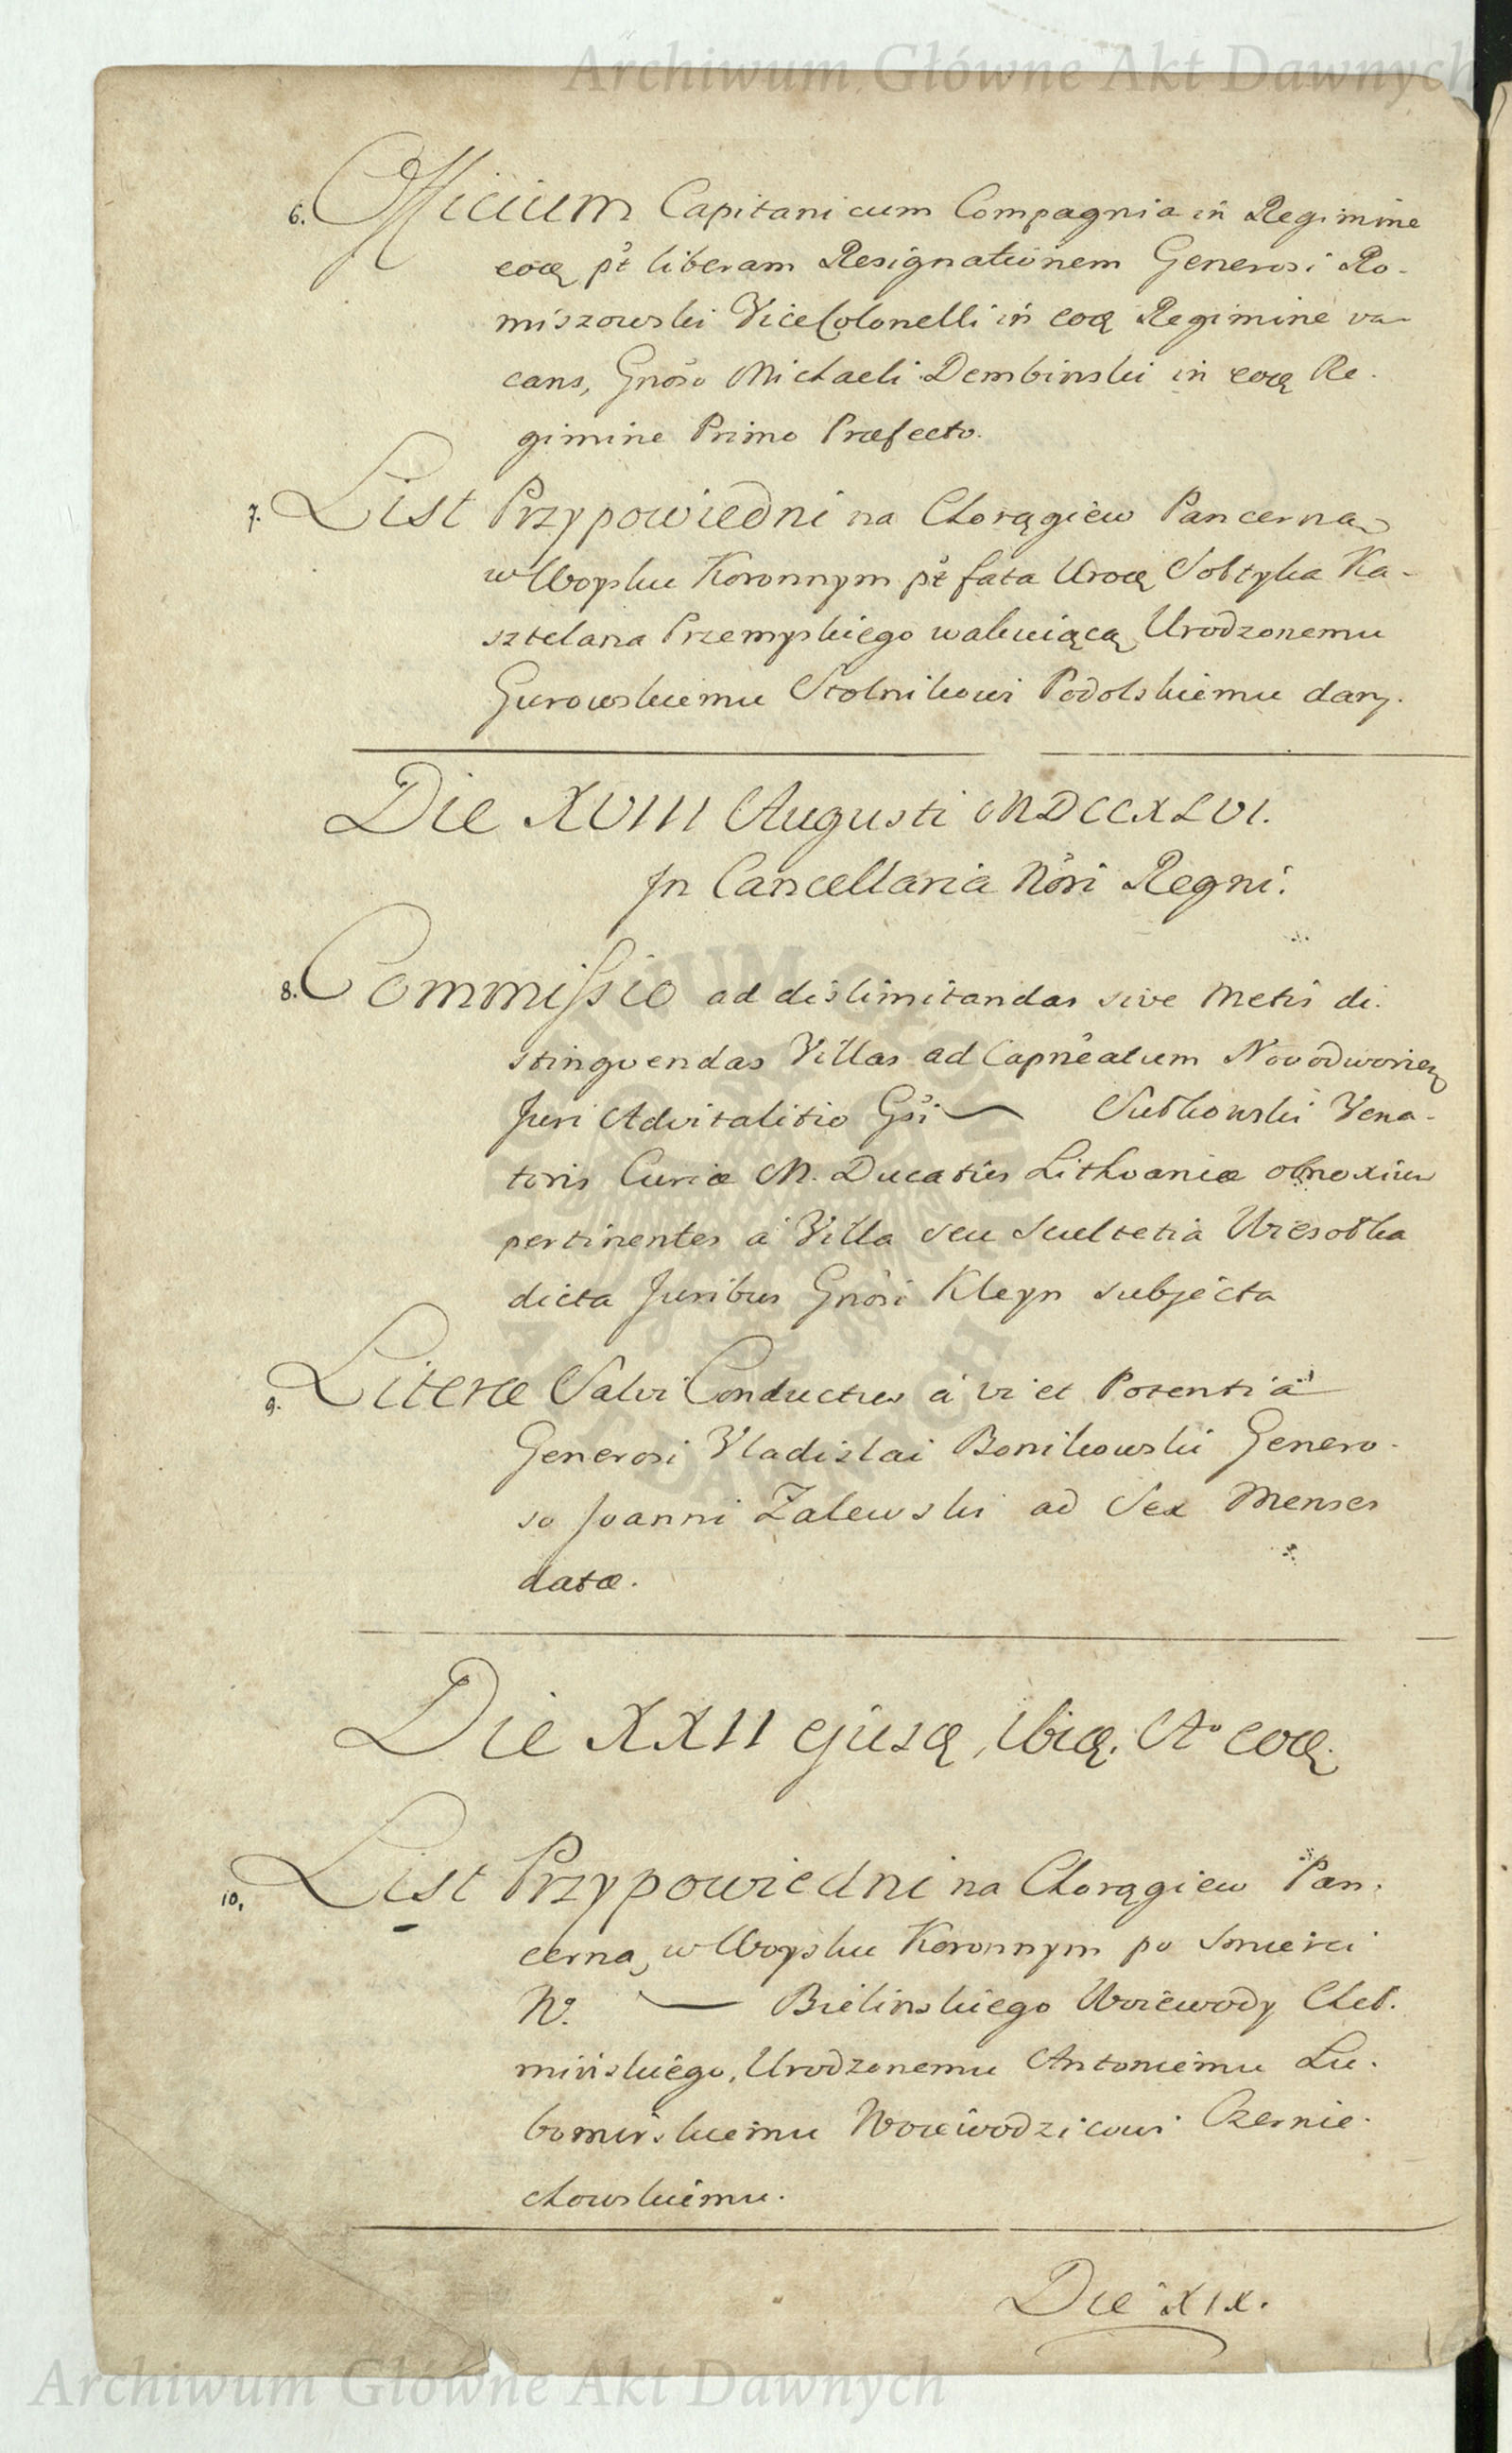 Archiwum Główne Akt Dawnych
6. Officium Capitanicum Compagnia in Regimine
eoq; pt liberam Resignationem Generosi Ro-
miszowski ViceColonelli in eoq; Regimine va-
cans, Gnoso Michaeli Dembinski in eoq; Re-
gimine Primo Præfecto.
7. List Przypowiedni na Chorągiew Pancerną
w Woysku Koronnym pt fata Uroq; Sołtyka Ka-
sztelana Przemyskiego wakuiącą Urodzonemu
Gurowskiemu Stolnikowi Podolskiemu dany.
Die XVIII Augusti MDCCXLVI.
Jn Cancellaria Nori Regni.
8. Commissio ad dislimitandas sive Metis di-
stinguendas Villas ad Capneatum Novodworien
Juri Advitalitio Gsi — Sułkowski Vena-
toris Curiæ M. Ducatûs Lithvaniæ obnoxium
pertinentes à Villa seu Scultetia
dicta Juribus Gnosi Kleyn subjecta
9. Literæ Salvi Conductus à vi et Potentiâ
Generosi Vladislai Bonikowski Genero-
so Joanni Zalewski ad Sex Menses
datæ.
Die XXII ejusq; ibiq; Aº eoq;
10. List Przypowiedni na Chorągiew Pan-
cerną w Woysku Koronnym po Smierci
Nº. — Bielinskiego Woiewody Cheł-
mińskiego, Urodzonemu Antoniemu Lu-
bomirskiemu Woiewodzicowi Czernie-
chowskiemu.
Die XIX.
Archiwum Główne Akt Dawnych